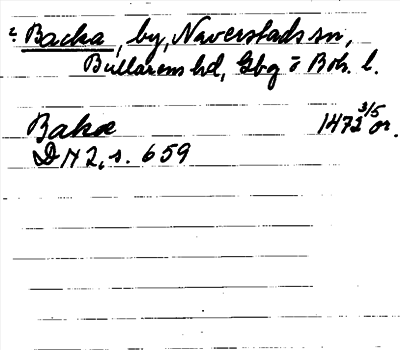 2. Backa, by, Naverstads sn,
Bullarens hd, Gbg o Boh. l.
Bakæ 1472 3/5 or.
DN 2, s. 659